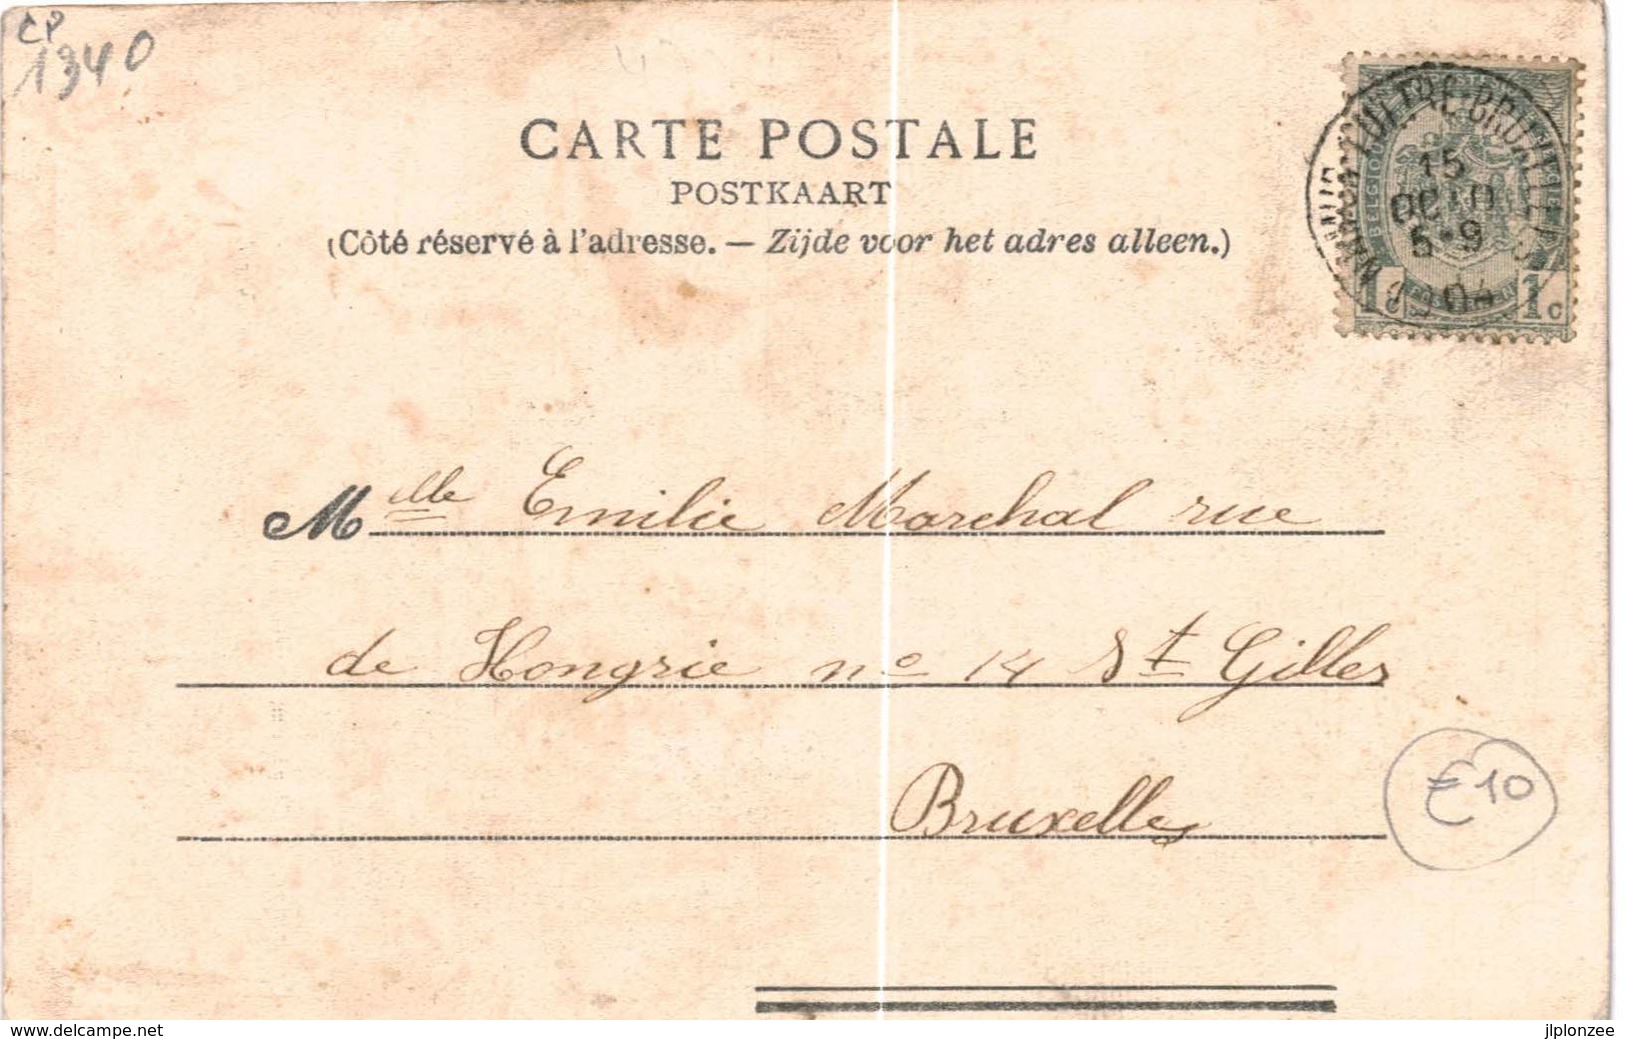 CP
1340
CARTE POSTALE
POSTKAART
(Côté réservé à l'adresse. — Zijde voor het adres alleen.)
POSTES
BELGIQUE
15
5-9
04
1c 1c
Mlle Emilie Marchal rue
de Hongrie no 14 St Gilles
Bruxelles
€10
www.delcampe.net
jlplonzee